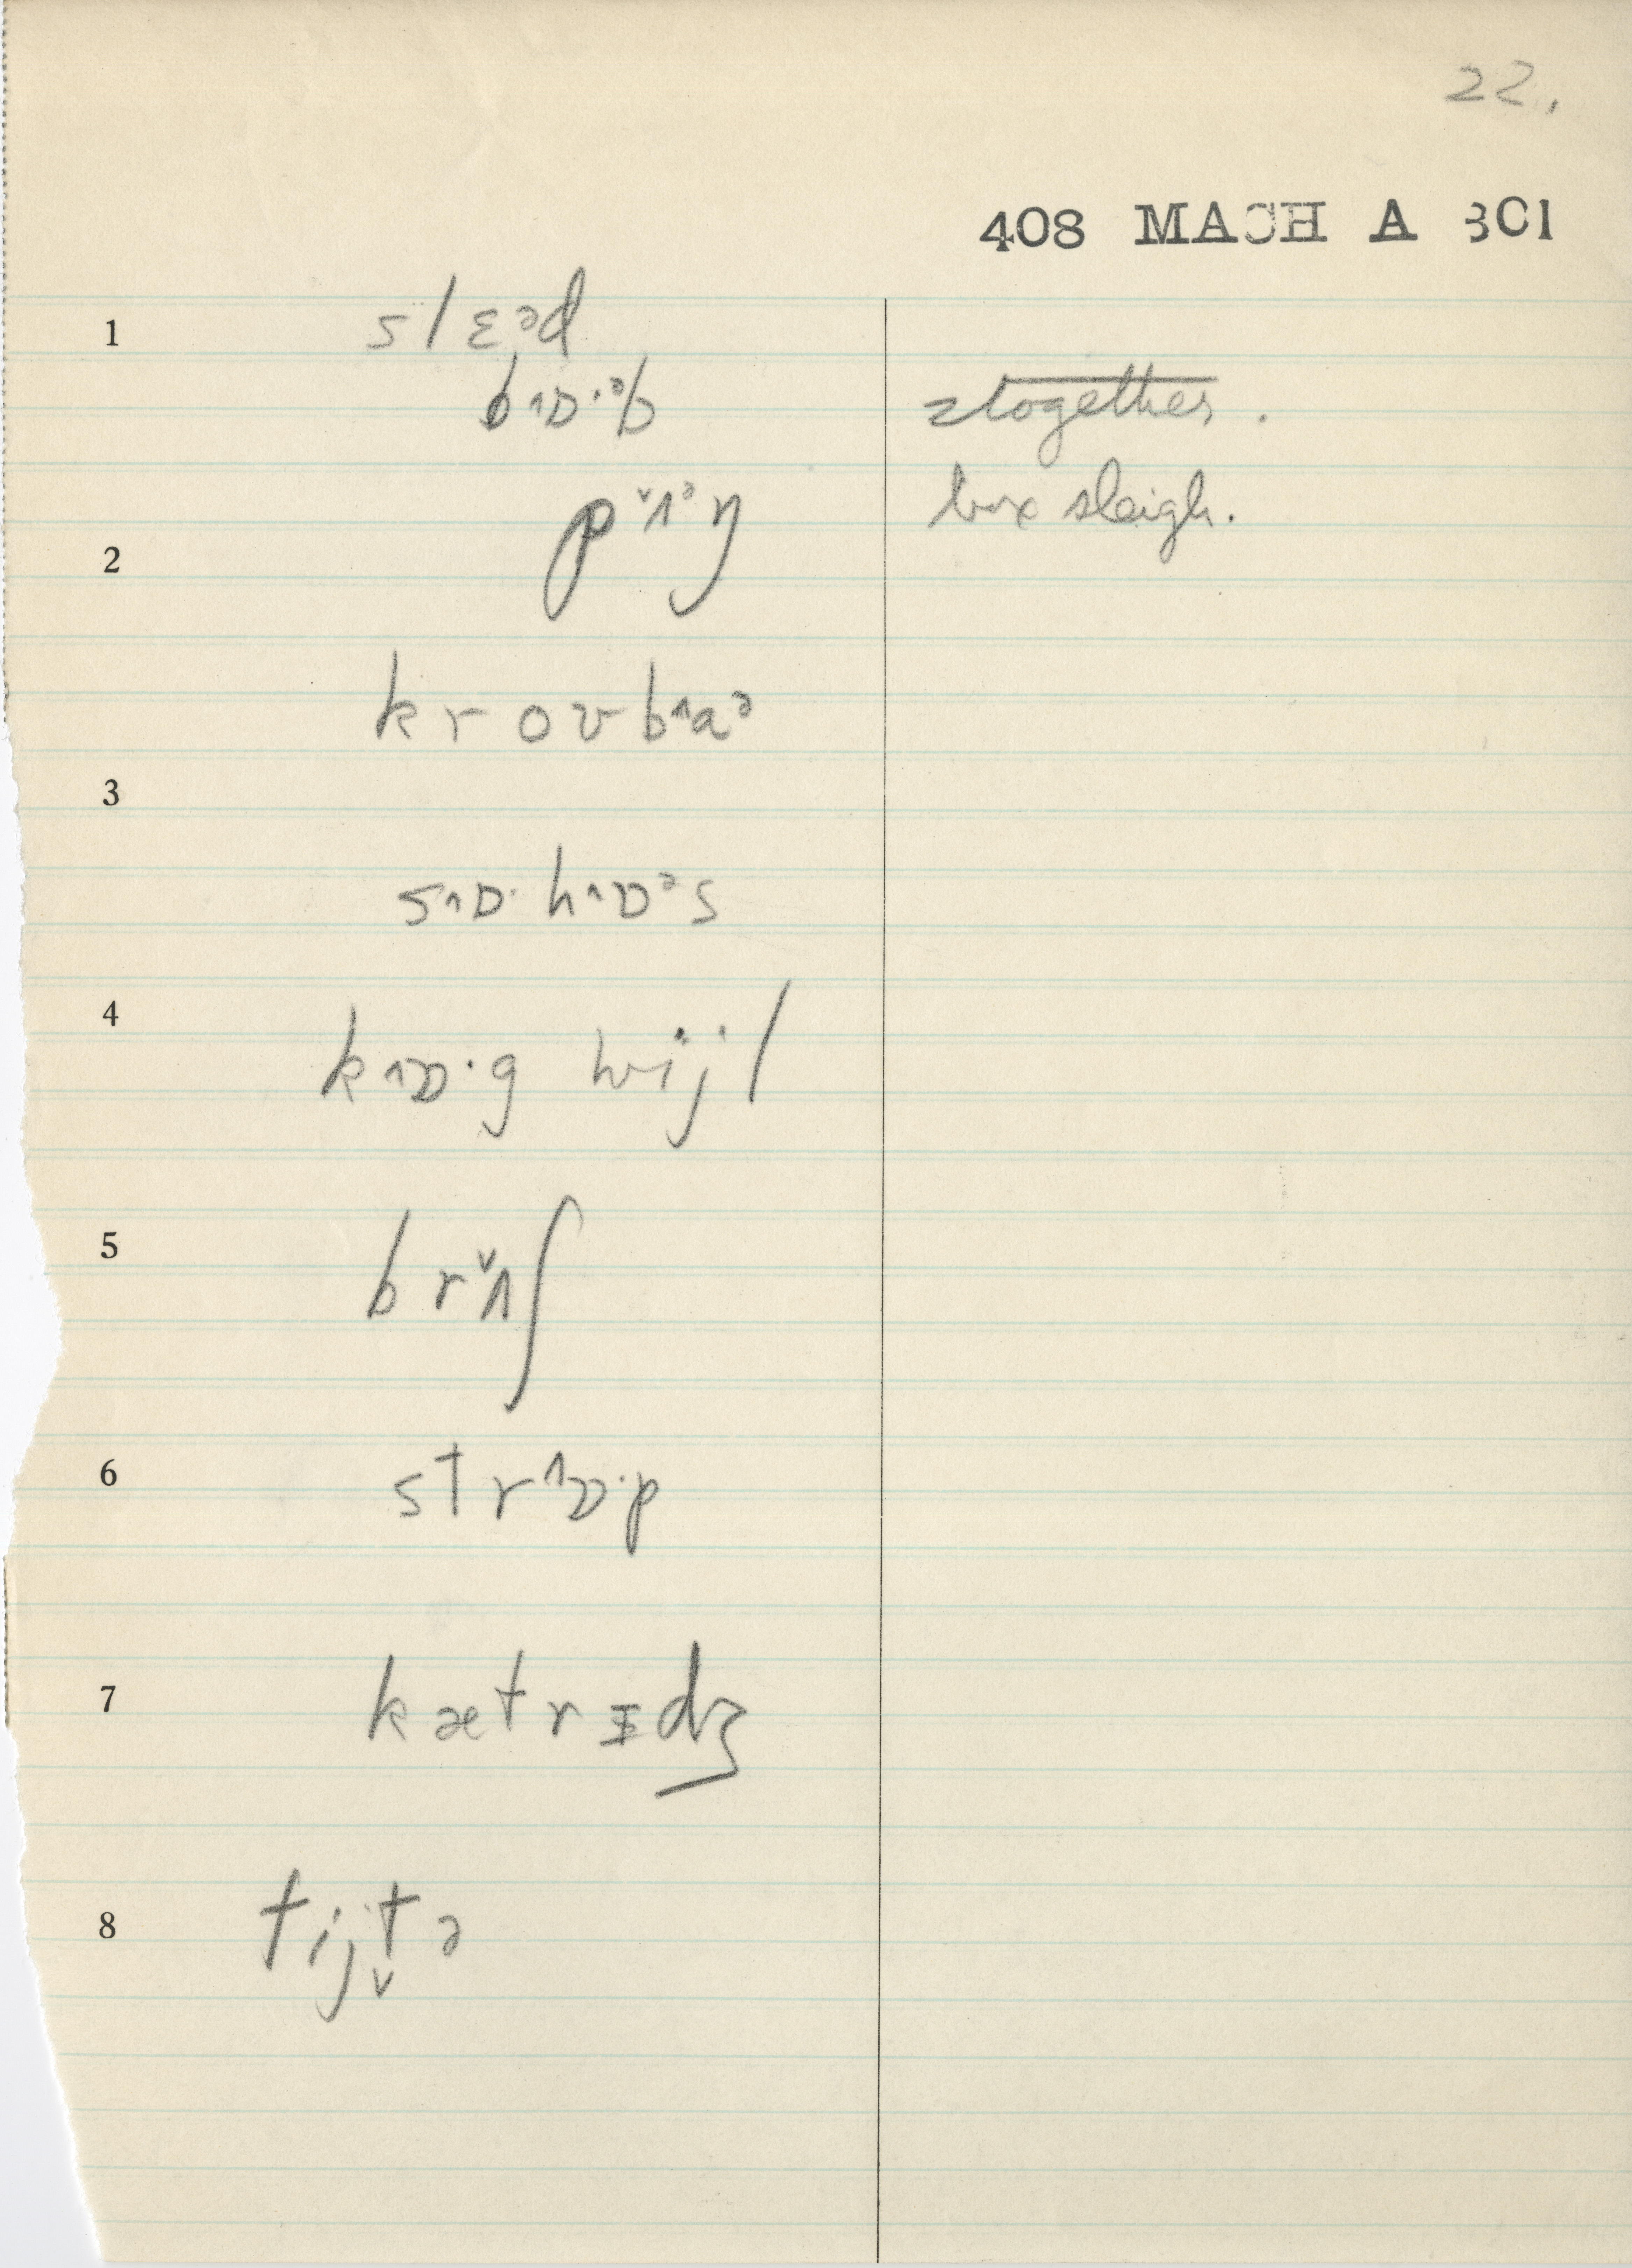 22.
408 MACH A 3C1
1 slɛᵊd
b^ɒ·ᵊb
2 together.
pˇʌᵊŋ box sleigh.
krovb^aᵊ
3
s^ɒ· h^ɒᵊs
4 k^ɒ·g hwijl
5 brˇʌʃ
6 str^ɒ·p
7 kætrɪdʒ
8 tijt̬ə